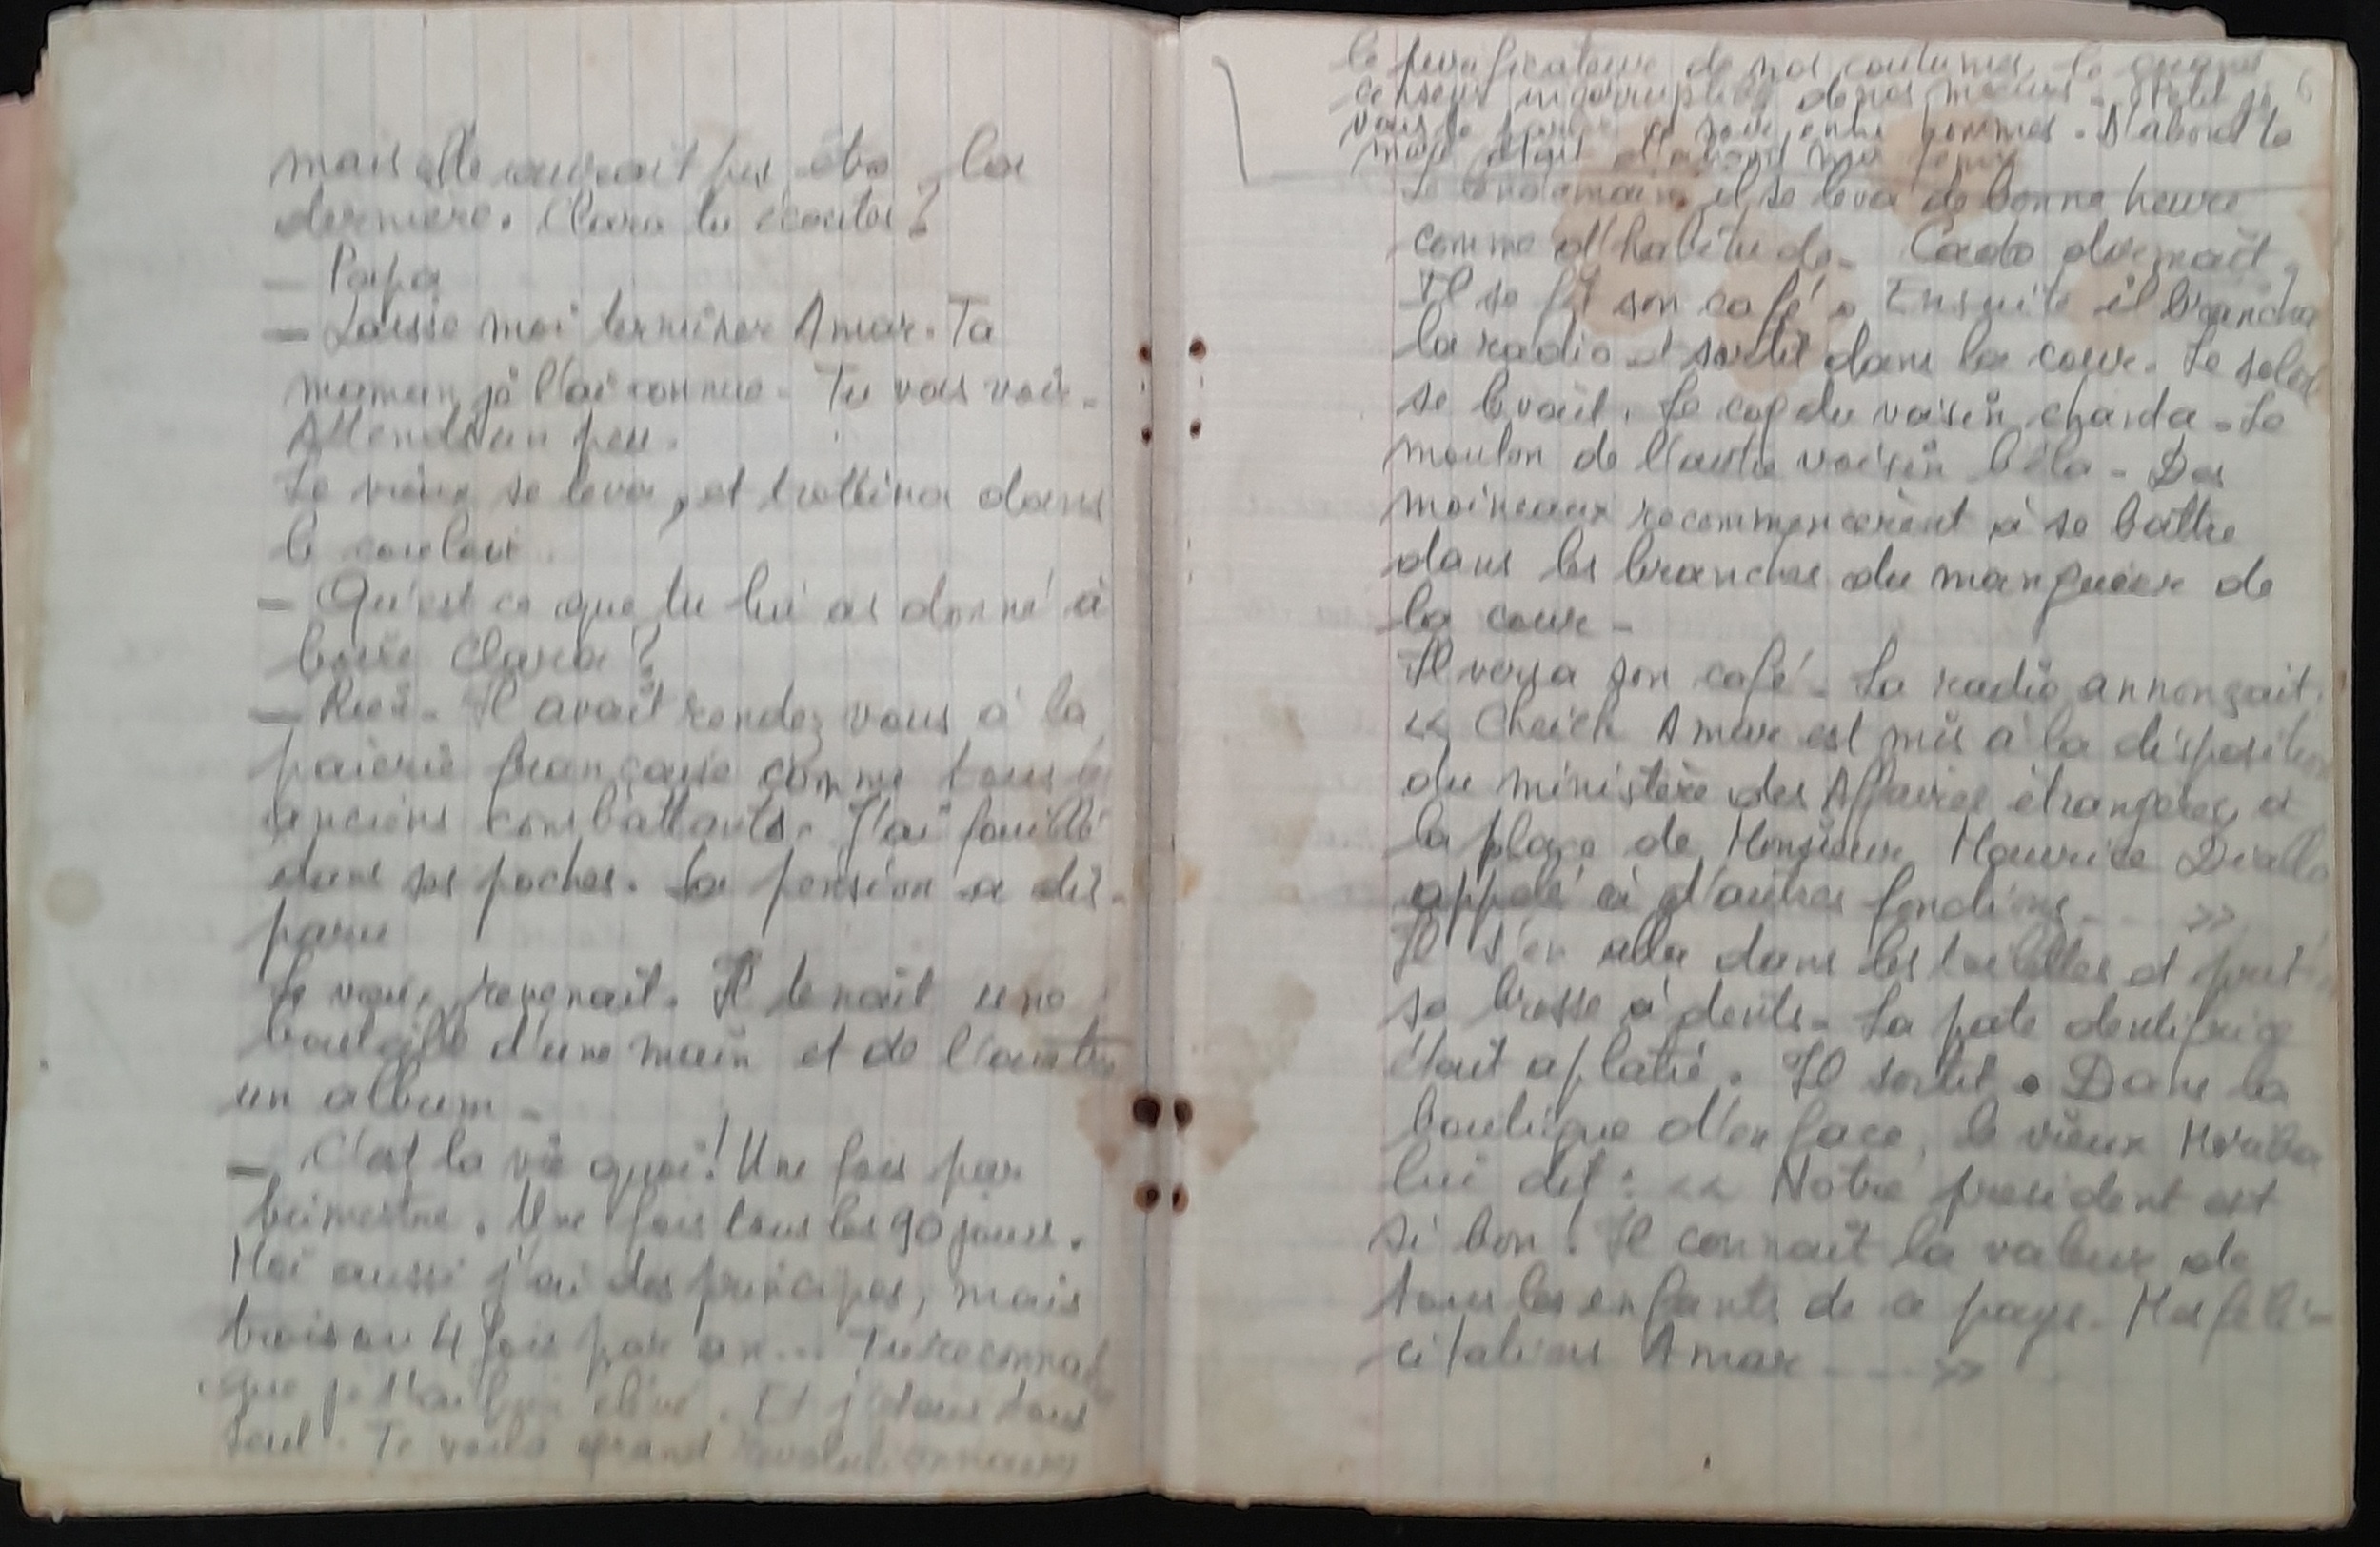 mais elle aurait pu être la
dernière. Clara tu écoutes?
— Papa
— Laisse moi terminer Amar. Ta
maman je l'ai connue. Tu vas voir.
Attends un peu.
Le vieux se leva, et trottina dans
le couloir.
— Qu'est ce que tu lui as donné à
boire Clara?
— Rien. Il avait rendez vous à la
paierie française comme tous les
anciens combattants. J'ai fouillé
dans ses poches. La pension a dis-
paru
Le vieux revenait. Il tenait une
bouteille d'une main et de l'autre
un album.
— C'est la vie quoi! Une fois par
trimestre. Une fois tous les 90 jours.
Moi aussi j'ai des principes, mais
trois ou 4 fois par an... Tu reconnais
que je t'ai bien élevé. Et j'étais tout
seul. Te voilà grand révolutionnaire
6
le purificateur de nos coutumes, le grand
censeur incorruptible de nos moeurs.
vous parler ce soir entre hommes. D'abord ta
mère était d'abord ma femme
Le lendemain, il se leva de bonne heure
comme d'habitude. Cado dormait.
Il se fit son café. Ensuite il brancha
la radio et sortit dans la cour. Le soleil
se levait. Le coq du voisin chanta. Le
mouton de l'autre voisin bêla. Des
moineaux recommencèrent à se battre
dans les branches du manguier de
la cour.
Il versa son café. La radio annonçait.
<< Cheick Amar est mis à la disposition
du ministère des Affaires étrangères, à
la place de Monsieur Maurice Diallo
appelé à d'autres fonctions.... >>
Il s'en alla dans les toilettes et prit
sa brosse à dents. La pate dentifrice
était aplatie. Il sortit. Dans la
boutique d'en face, le vieux Moriba
lui dit : << Notre president est
si bon. Il connait la valeur de
tous les enfants de ce pays. Mes féli-
citations Amar.... >>